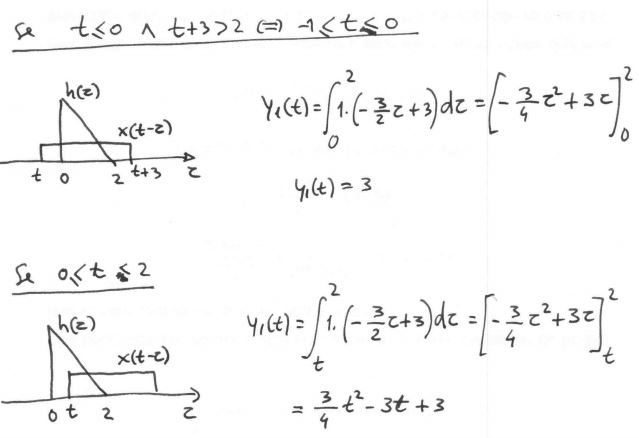 Se t≤0 ∧ t+3>2 ⟺ -1≤t≤0
h(τ)
x(t-τ)
t 0 2 t+3 τ
y₁(t) = ∫₀² 1·(-3/2 τ+3) dτ = [-3/4 τ² + 3τ]₀²
y₁(t) = 3
Se 0≤t≤2
h(τ)
x(t-τ)
0 t 2 τ
y₁(t) = ∫ₜ² 1·(-3/2 τ+3) dτ = [-3/4 τ² + 3τ]ₜ²
= 3/4 t² - 3t + 3